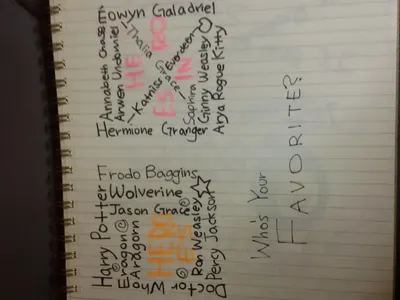 Eowyn Galadriel
Annabeth Chase
Arwen Undomiel
Thalia
Grace
Katniss Everdeen
HE RO
ES IN
Saphira
Ginny Weasley
Arya Rogue Kitty
Hermione Granger
Harry Potter
Frodo Baggins
Wolverine
Jason Grace
Eragon
Aragorn
HERO
ES
Ron Weasley
Percy Jackson
Doctor Who
Who's Your
FAVORITE?